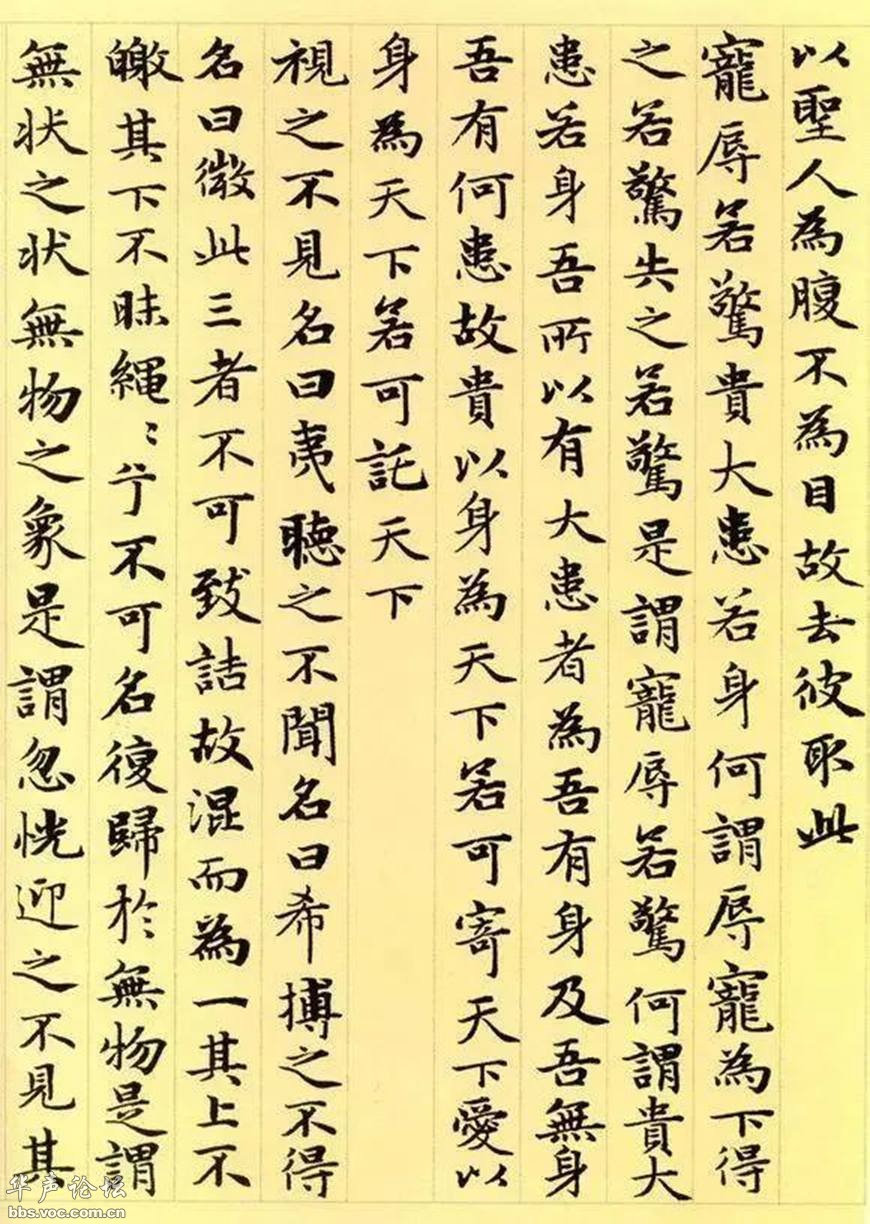 以聖人為腹不為目故去彼取此
寵辱若驚貴大患若身何謂辱寵為下得
之若驚失之若驚是謂寵辱若驚何謂貴大
患若身吾所以有大患者為吾有身及吾無身
吾有何患故貴以身為天下若可寄天下愛以
身為天下若可託天下
視之不見名曰夷聽之不聞名曰希搏之不得
名曰微此三者不可致詰故混而為一其上不
皦其下不昧繩〻兮不可名復歸於無物是謂
無状之状無物之象是謂忽恍迎之不見其
华声论坛
bbs.voc.com.cn